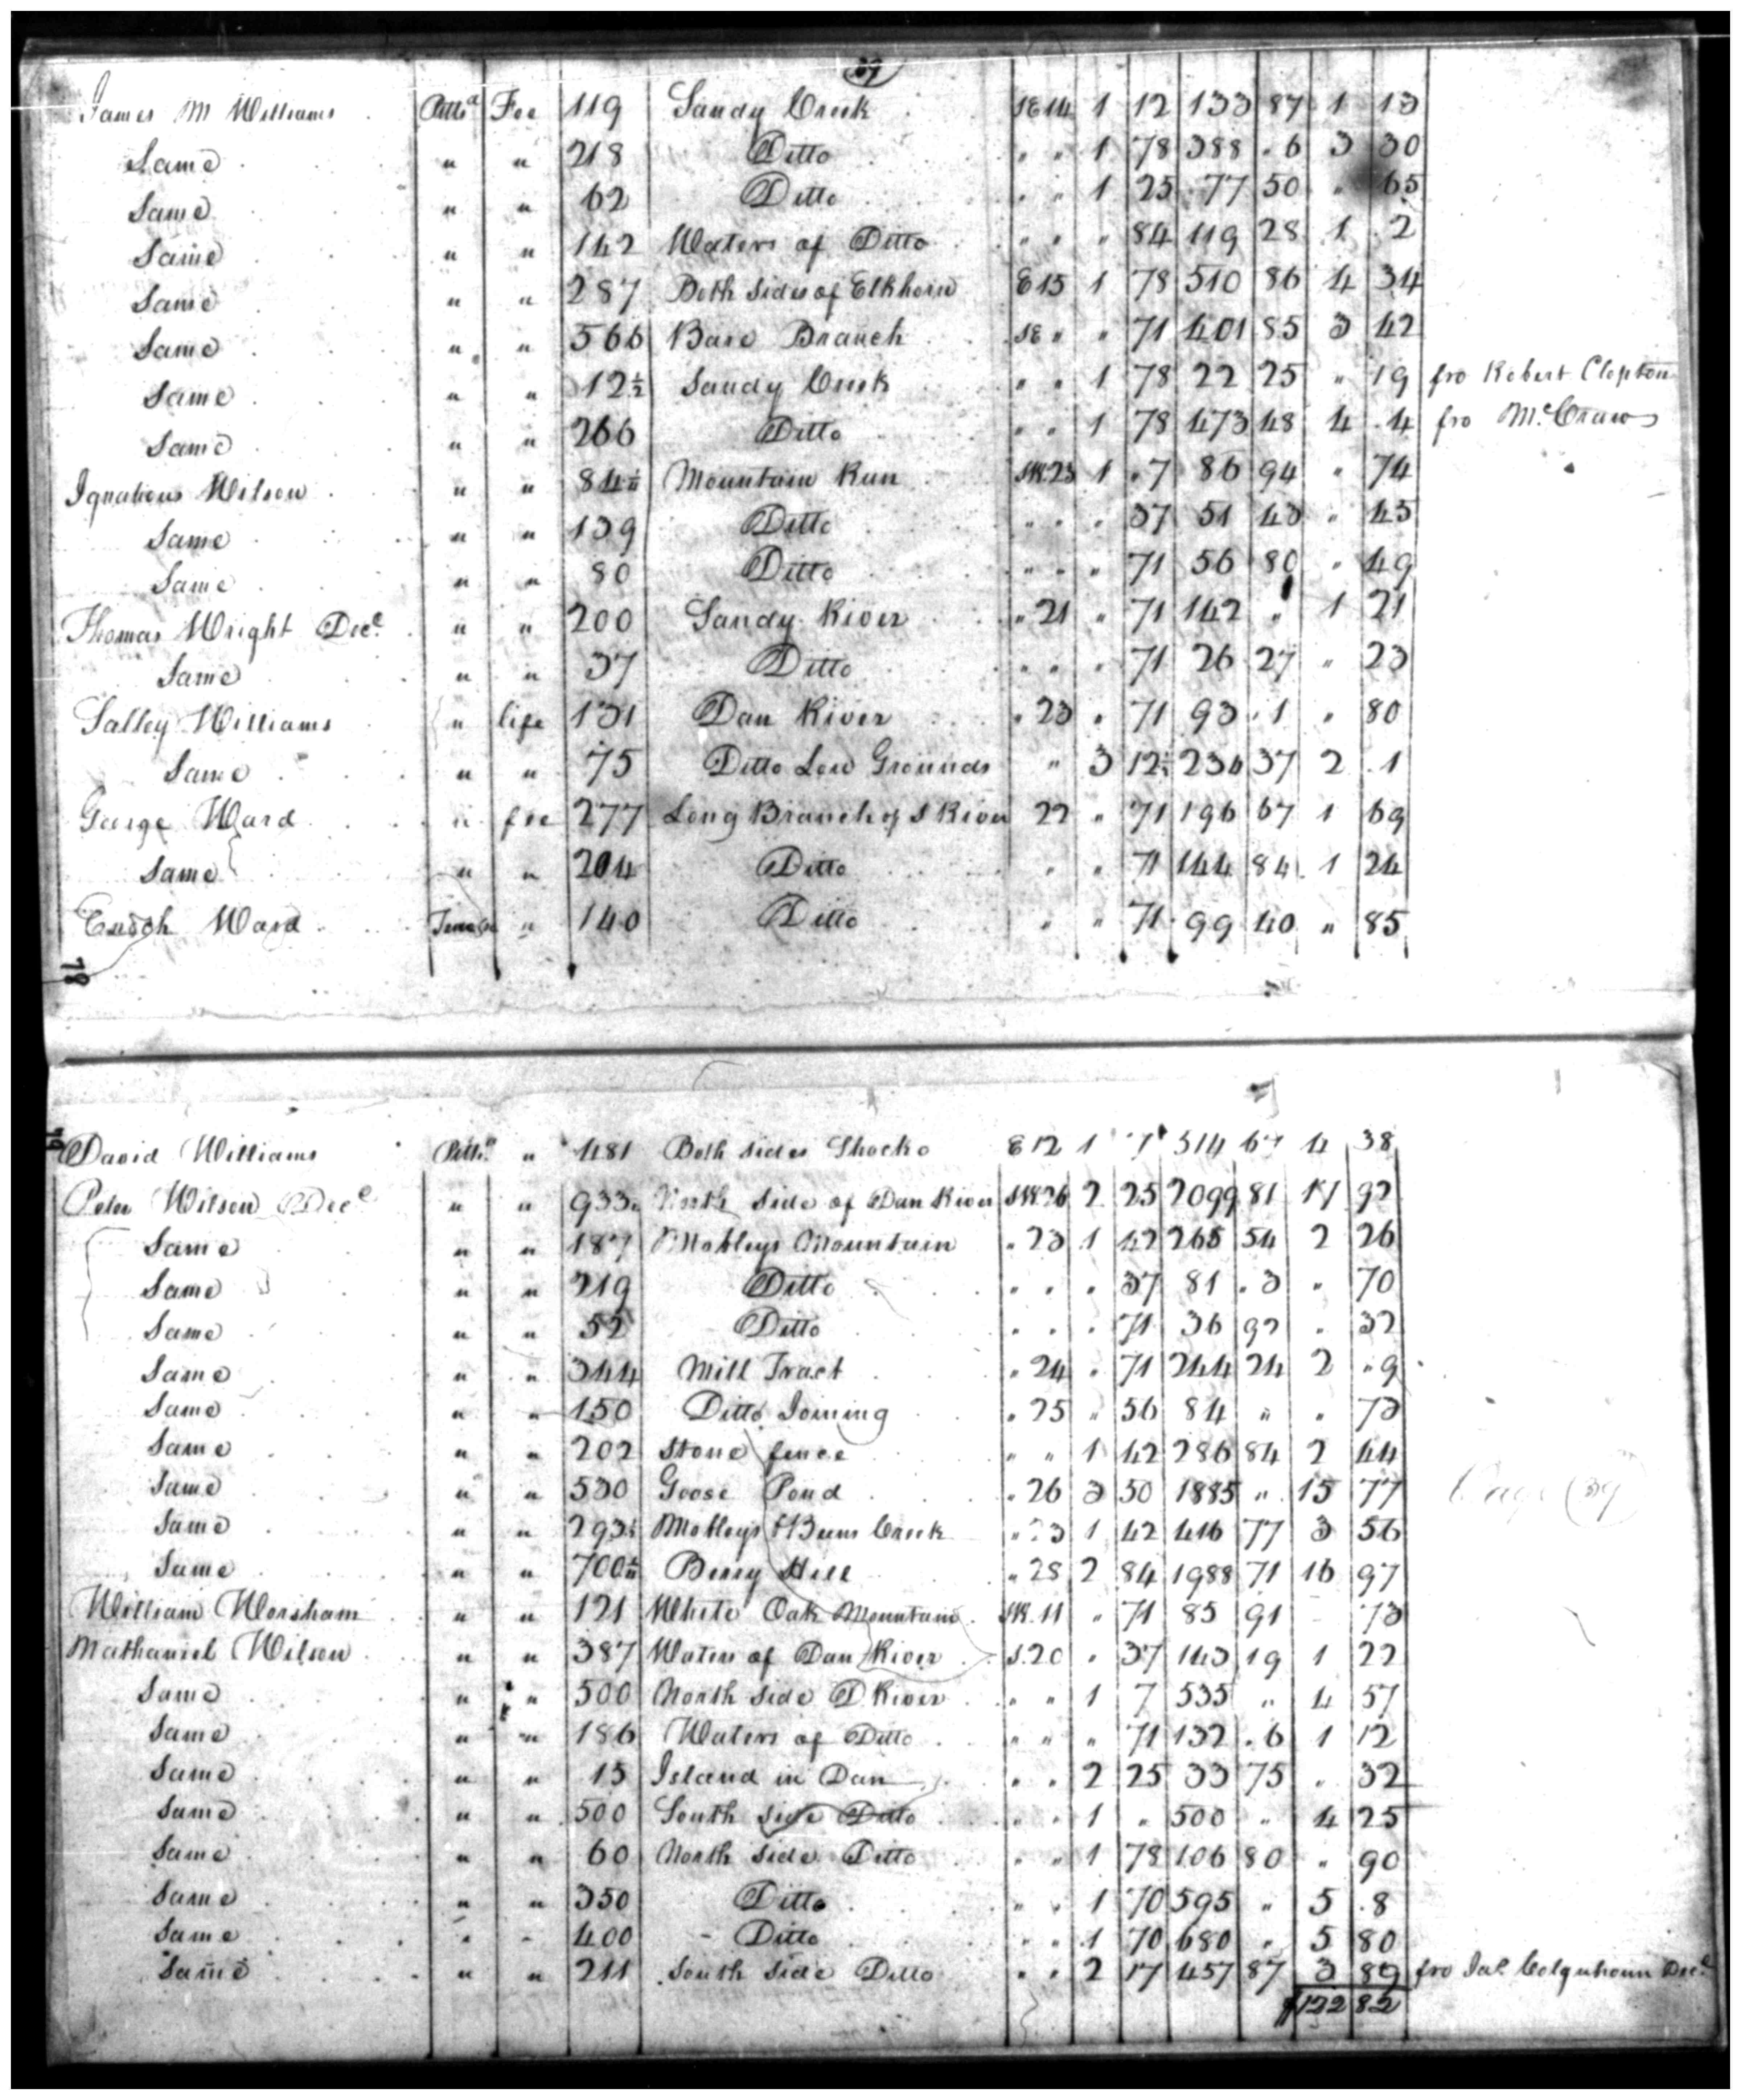 39
James M Williams Pittsa Fee 119 Sandy Creek SE 14 1 12 133 87 1 13
Same " " 218 Ditto " " 1 78 388 . 6 3 30
Same " " 62 Ditto " " 1 25 77 50 " 65
Same " " 142 Waters of Ditto " " " 84 119 28 1 . 2
Same " " 287 Both Sides of Elkhorn E 15 1 78 510 86 4 34
Same " " 566 Bare Branch SE " " 71 401 85 3 42
Same " " 12½ Sandy Creek " " 1 78 22 25 " 19 fro Robert Clopton
Same " " 266 Ditto " " 1 78 473 48 4 . 4 fro McCraws
Ignatious Wilson " " 84 Mountain Run SW. 23 1 . 7 86 94 " 74
Same " " 139 Ditto " " " 37 51 43 " 43
Same " " 80 Ditto " " " 71 56 80 " 49
Thomas Wright Decd " " 200 Sandy River " 21 " 71 142 " 1 21
Same " " 37 Ditto " " " 71 26 27 " 23
Salley Williams " life 131 Dan River " 23 " 71 93 . 1 " 80
Same " " 75 Ditto Low Grounds " 3 12½ 234 37 2 . 1
George Ward " fee 277 Long Branch of S River 22 " 71 196 67 1 69
Same " " 204 Ditto " " 71 144 84 1 24
Enoch Ward " 140 Ditto " " 71 99 40 " 85
78
David Williams Pittsa " 481 Both sides Shocko E 12 1 7 514 67 4 38
Peter Wilson Decd " " 933 North Side of Dan River SW. 26 2 25 2099 81 17 92
Same " " 187 Mobleys Mountain " 23 1 42 265 54 2 26
Same " " 219 Ditto " " " 37 81 . 3 " 70
Same " " 52 Ditto " " " 71 36 92 " 32
Same " " 344 Mill Tract " 24 " 71 244 24 2 " 9
Same " " 150 Ditto Joining " 25 " 56 84 " " 73
Same " " 202 Stone fence " " 1 42 286 84 2 44
Same " " 530 Goose Pond " 26 3 50 1885 " 15 77
Same " " 293½ Mobleys & Beens Creek " 23 1 42 416 77 3 56
Same " " 700 Berry Hill " 28 2 84 1988 71 16 97
William Worsham " " 121 White Oak Mountain SW. 11 " 71 85 91 - 73
Nathaniel Wilson " " 387 Waters of Dan River S. 20 " 37 143 19 1 22
Same " " 500 North Side D River " " 1 7 535 " 4 57
Same " " 186 Waters of Ditto " " " 71 132 . 6 1 12
Same " " 15 Island in Dan " " 2 25 33 75 " 32
Same " " 500 South Side Ditto " " 1 " 500 " 4 25
Same " " 60 North Side Ditto " " 1 78 106 80 " 90
Same " " 350 Ditto " " 1 70 595 " 5 . 8
Same " " 400 - Ditto " " 1 70 680 " 5 80
Same " " 211 South Side Ditto " " 2 17 457 87 3 89 fro Jas. Colquhoun Decd
$122 82